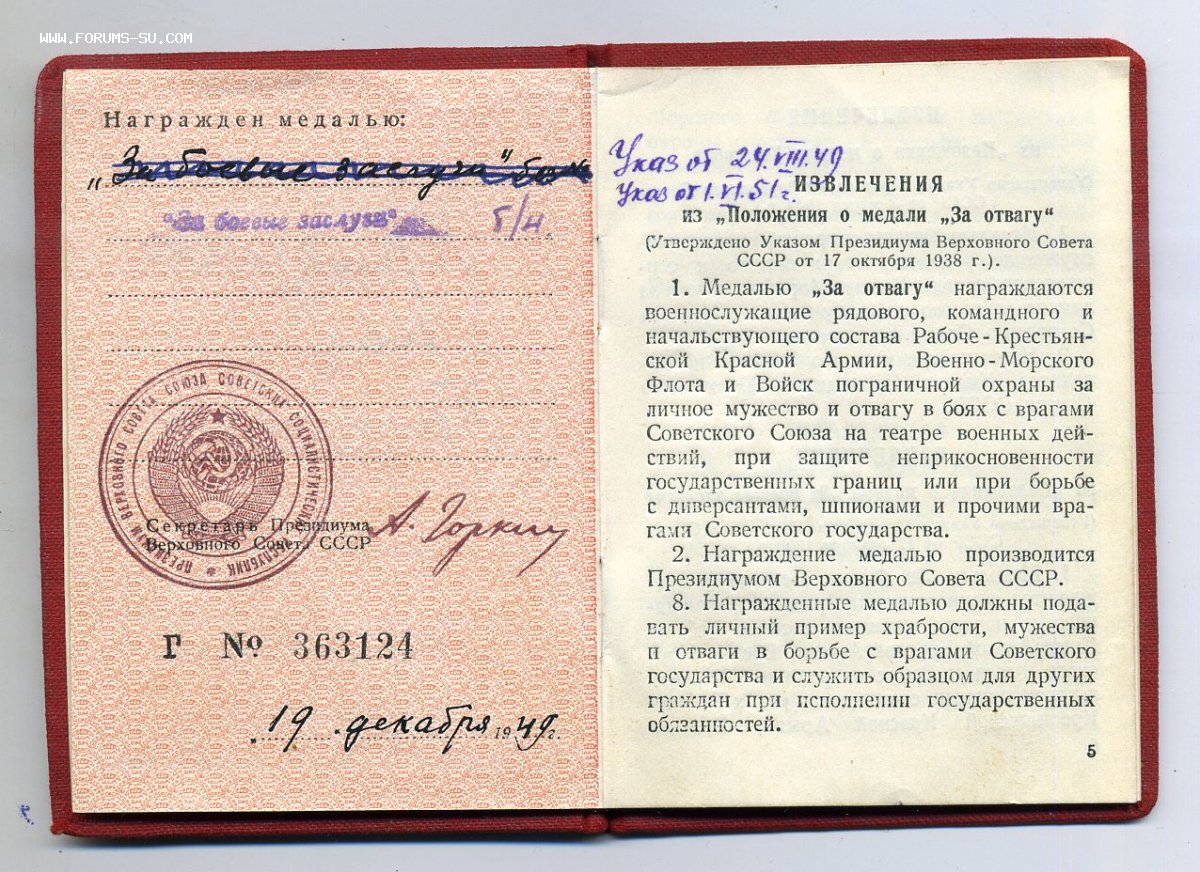 WWW.FORUMS-SU.COM
Награжден медалью:
„За боевые заслуги“ б/№
"За боевые заслуги" б/н.
ПРЕЗИДИУМ ВЕРХОВНОГО СОВЕТА СОЮЗА СОВЕТСКИХ СОЦИАЛИСТИЧЕСКИХ РЕСПУБЛИК
Секретарь Президиума
Верховного Совет. СССР
А. Горкин
Г № 363124
19 декабря 1949 г.
Указ от 24.VIII.49
Указ от 1.VI.51 г.
ИЗВЛЕЧЕНИЯ
из „Положения о медали „За отвагу“
(Утверждено Указом Президиума Верховного Совета
СССР от 17 октября 1938 г.).
1. Медалью „За отвагу“ награждаются
военнослужащие рядового, командного и
начальствующего состава Рабоче-Крестьян-
ской Красной Армии, Военно-Морского
Флота и Войск пограничной охраны за
личное мужество и отвагу в боях с врагами
Советского Союза на театре военных дей-
ствий, при защите неприкосновенности
государственных границ или при борьбе
с диверсантами, шпионами и прочими вра-
гами Советского государства.
2. Награждение медалью производится
Президиумом Верховного Совета СССР.
8. Награжденные медалью должны пода-
вать личный пример храбрости, мужества
и отваги в борьбе с врагами Советского
государства и служить образцом для других
граждан при исполнении государственных
обязанностей.
5